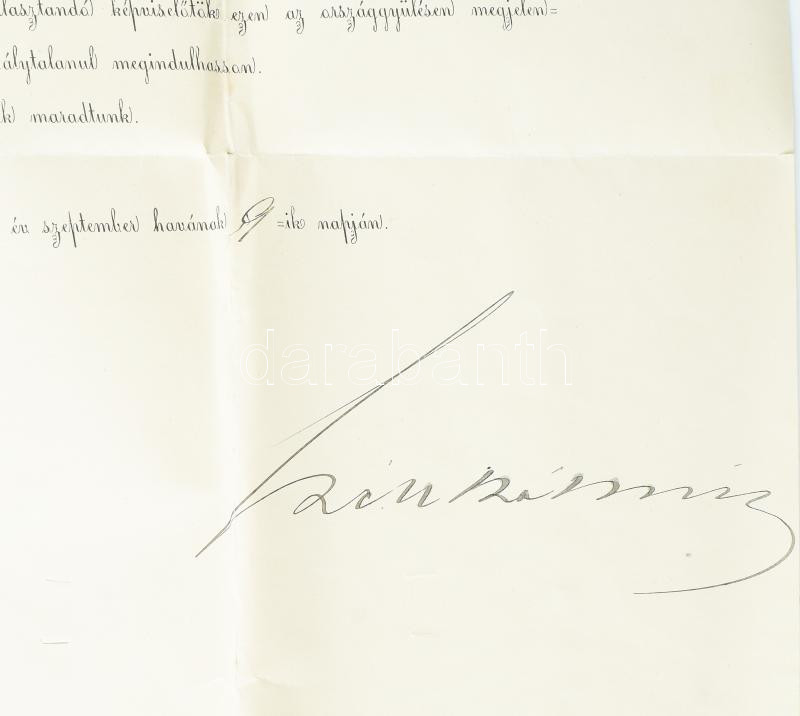 lasztandó képviselőtök ezen az országgyülésen megjelen=
álytalanul megindulhasson.
k maradtunk.
év szeptember havának 9 =ik napján.
darabanth
Széll Kálmán